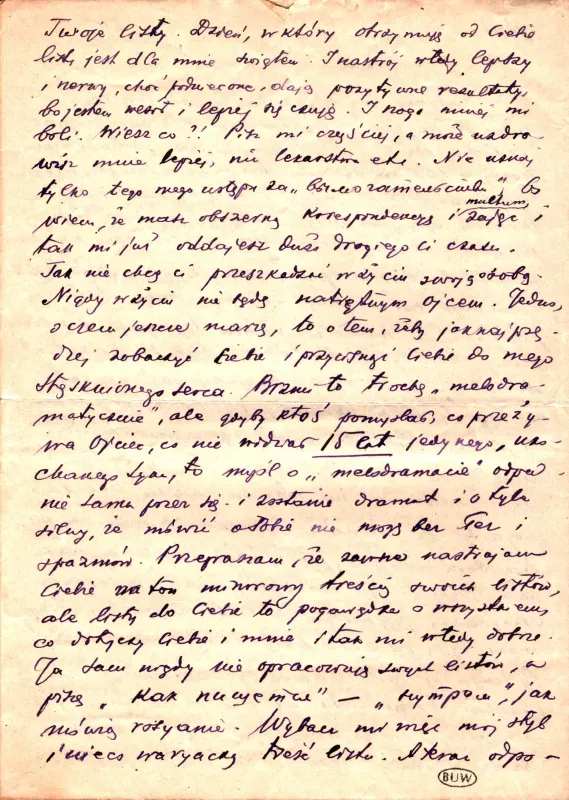 Twoje listy. Dzień, w który otrzymuję od Ciebie
list jest dla mnie świętem. I nastrój wtedy lepszy
i nerwy, choć podniecone, dają pozytywne rezultaty,
bo jestem wesół i lepiej się czuję. I noga mniej mi
boli. Wiesz co?! Pisz mi częściej, a może uzdro-
wisz mnie lepiej, niż lekarstwa etc. Nie uznaj
tylko tego mego ustępu za „ bo
wiem, że masz obszerną korespondencję i multum zajęć i
tak mi już oddajesz dużo drogiego Ci czasu.
Tak nie chcę Ci przeszkadzać w życiu swoją osobą.
Nigdy w życiu nie będę natrętnym ojcem. Jedno,
o czem jeszcze marzę, to o tem, żeby jaknajprę-
dzej zobaczyć Ciebie i przycisnąć Ciebie do mego
stęsknionego serca. Brzmi to trochę „melodra-
matycznie", ale gdyby ktoś pomyślał, co przeży-
wa Ojciec, co nie widział 15 lat jedynego, uko-
chanego syna, to myśl o „melodramacie" odpad-
nie sama przez się i zostanie dramat i o tyle
silny, że mówić o tobie nie mogę bez łez i
spazmów. Przepraszam, że zawsze nastrajam
Ciebie na ton minorowy treścią swoich listów,
ale listy do Ciebie to pogawędka o wszystkiem,
co dotyczy Ciebie i mnie i tak mi wtedy dobrze.
Ja sam nigdy nie opracowuję swych listów, a
piszę „ — ", jak
mówią rosyanie. Wybacz mi więc mój styl
i nieco waryacką treść listu. A teraz odpo-
BUW